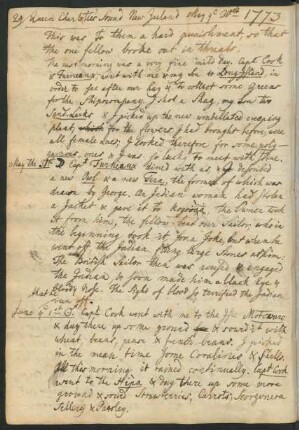 29 Queen Charlottes Sound New Zeeland May ye 1773
This was to them a hard punishment, so that
the one fellow broke out in threats.
The next morning was a very fine mild day. Capt Cook
& Furneaux went with me & my Son to Long Island in
order to see after our hay & to collect some Greens
for the Ships company. I shot a Shag, my Son two
Sandlarks & I picked up the new umbellated
plant, for the flowers I had bought before, were
all female ones; I looked therefore for some
ones, & I was so lucky to meet with some.
May the 31st Capt Furneaux dined with us. We described
a new Owl & a new the former of which was
drawn by George. An Indian woman had stolen
a Jacket & gave it to the owner took
it from him, the fellow beat our Sailor, who in
the beginning took it for a Joke, but when he
went off the Indian flung large Stones at him.
The British Sailor then was & engaged
the Indian & soon made him a black Eye &
bloody Nose. The sight of blood so terrified the Indian
that he run off.
June ye 1st Capt Cook went with me to the Isle Motuara
& dug there up some ground & sowed it with
wheat, beans, pease & french beans. I picked
in the mean time some Corallines & Shells.
All this morning it rained continually. Capt Cook
went to the Hipa & dug there up some more
ground & sowed Strawberries, Carrots, Scorzonera
Sellery & Parsley.